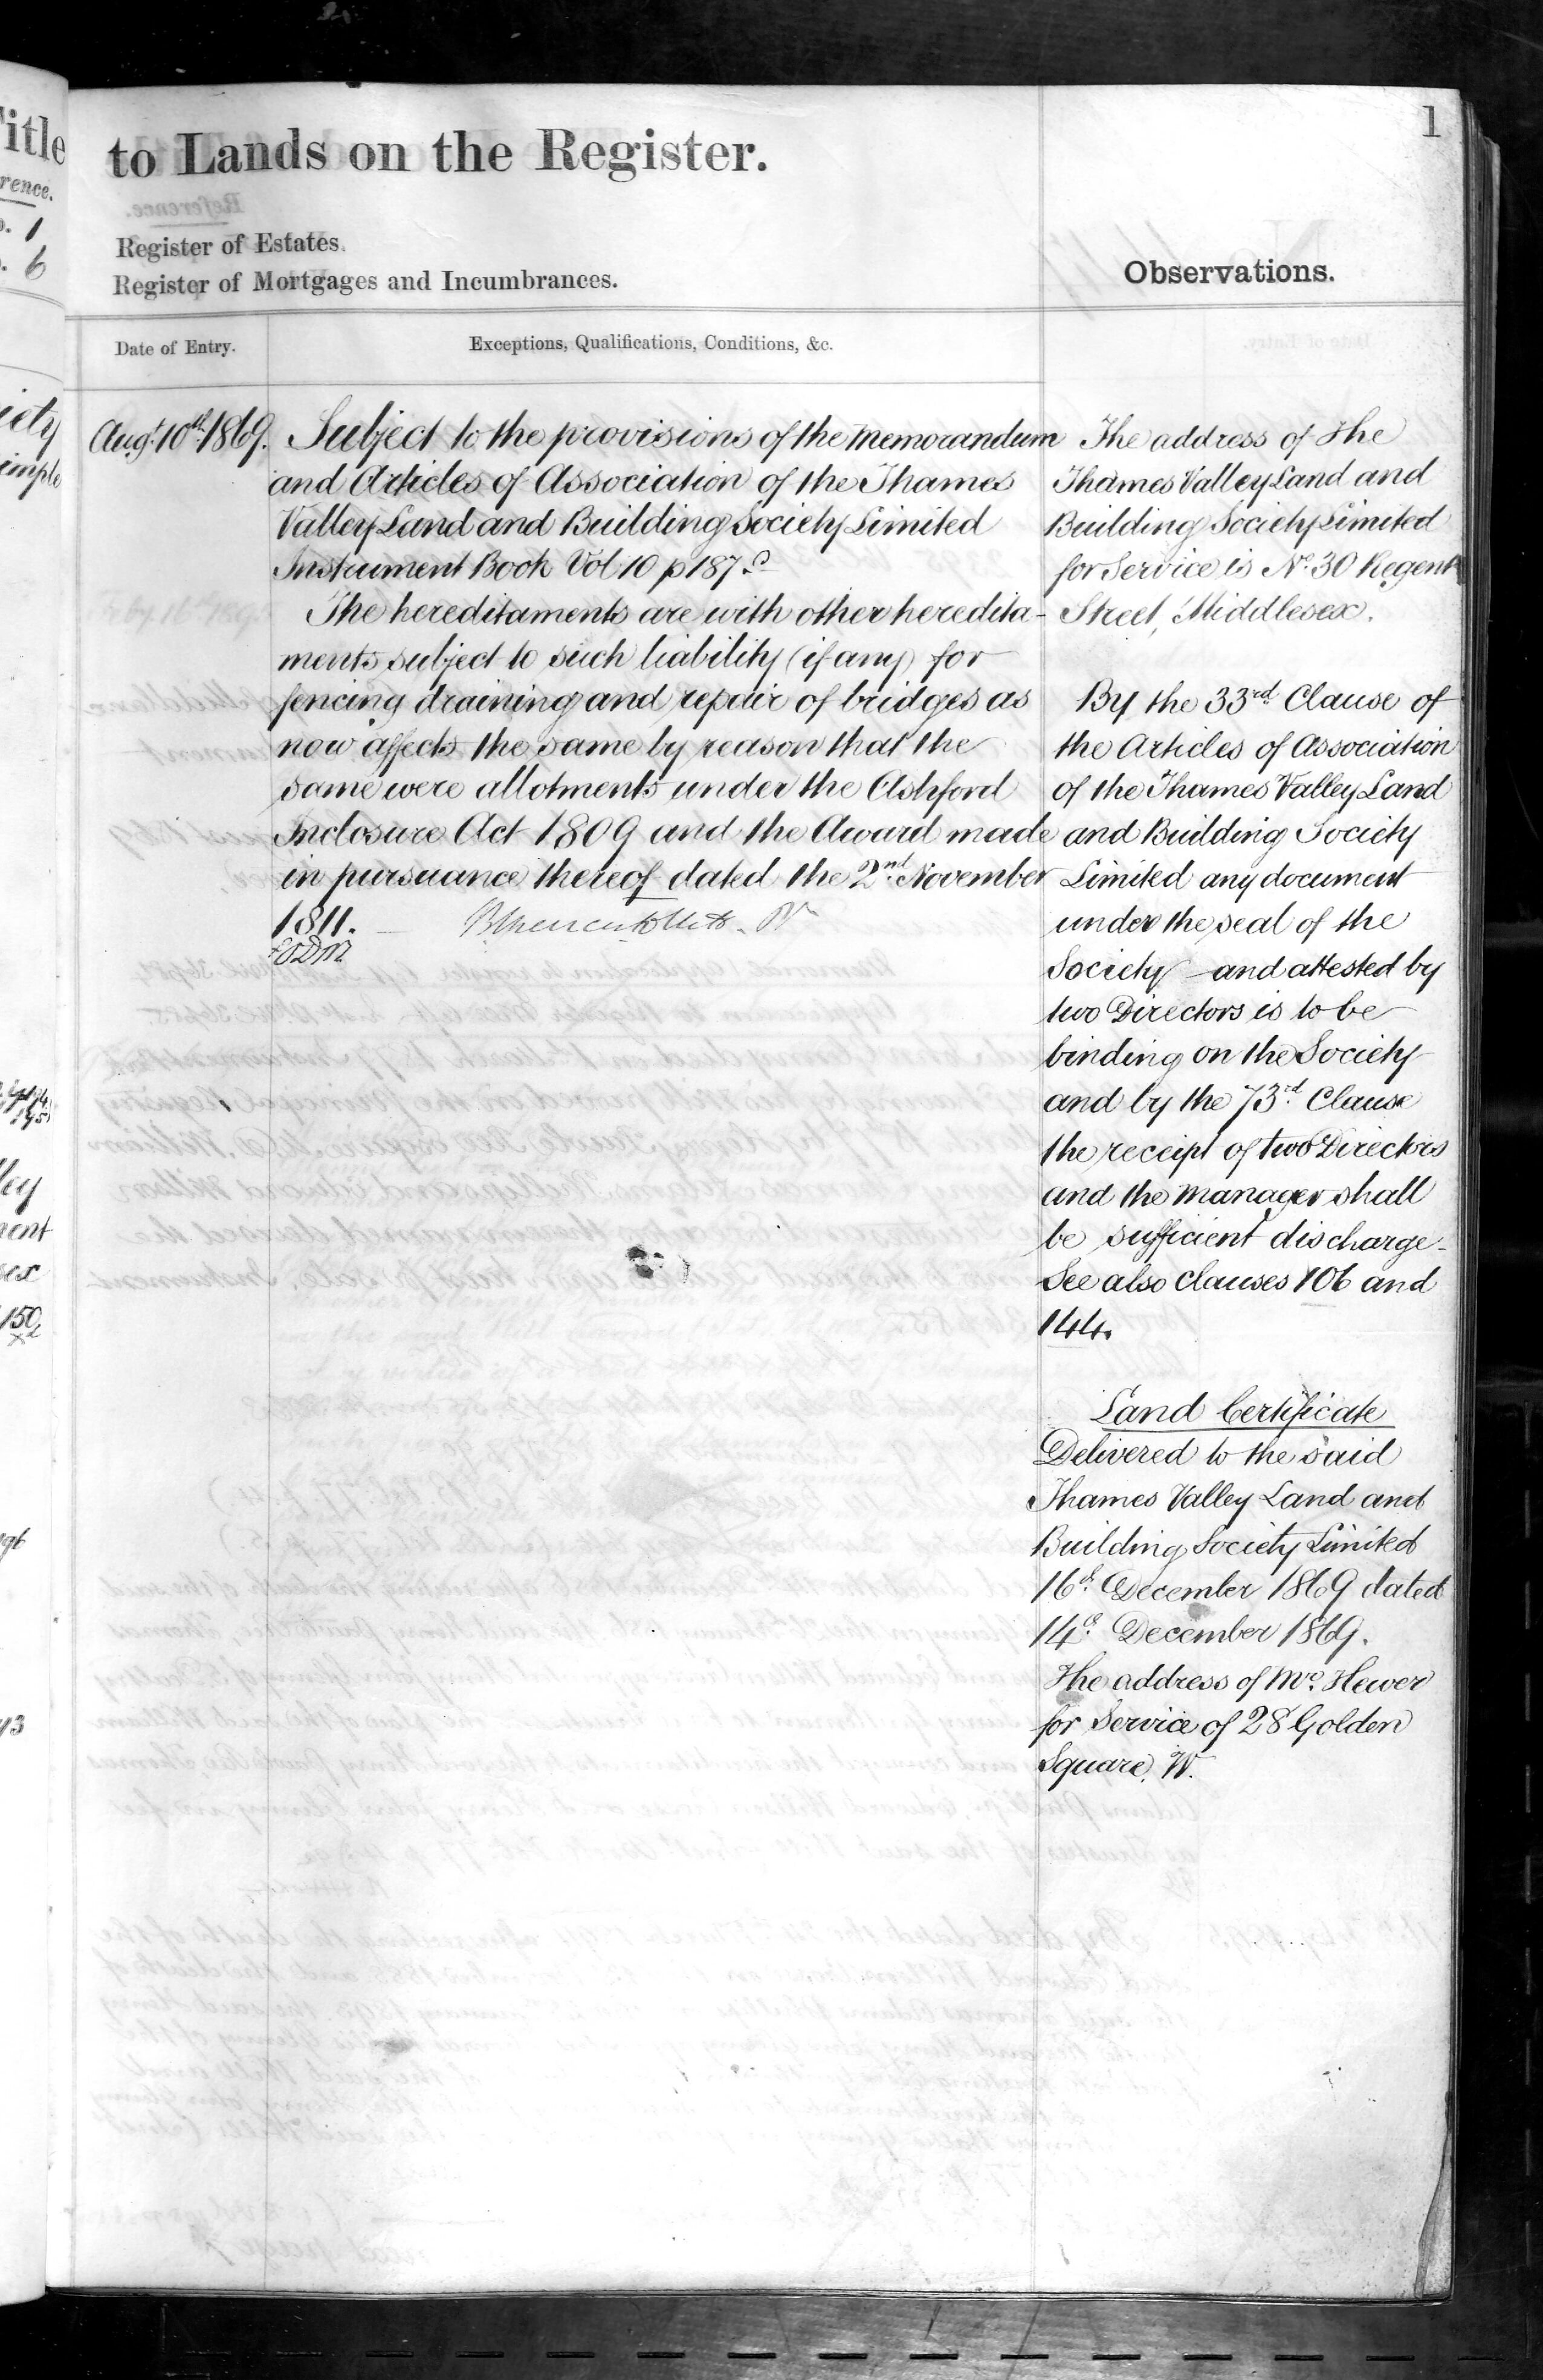 1
to Lands on the Register.
Register of Estates.
Register of Mortgages and Incumbrances.
Observations.
Date of Entry.
Exceptions, Qualifications, Conditions, &c.
Augt. 10th 1869.
Subject to the provisions of the Memorandum
and Articles of Association of the Thames
Valley Land and Building Society Limited
Instrument Book Vol 10 p 187.
The hereditaments are with other heredita-
ments subject to such liability (if any) for
fencing draining and repair of bridges as
now affects the same by reason that the
same were allotments under the Ashford
Inclosure Act 1809 and the Award made
in pursuance thereof dated the 2nd November
1811.
The address of the
Thames Valley Land and
Building Society Limited
for Service is No. 30 Regent
Street, Middlesex.
By the 33rd Clause of
the Articles of Association
of the Thames Valley Land
and Building Society
Limited any document
under the seal of the
Society and attested by
two Directors is to be
binding on the Society
and by the 73rd Clause
the receipt of two Directors
and the manager shall
be sufficient discharge.
See also clauses 106 and
144.
Land Certificate
Delivered to the said
Thames Valley Land and
Building Society Limited
16th December 1869 dated
14th December 1869.
The address of Mr. Hewer
for Service of 28 Golden
Square, W.